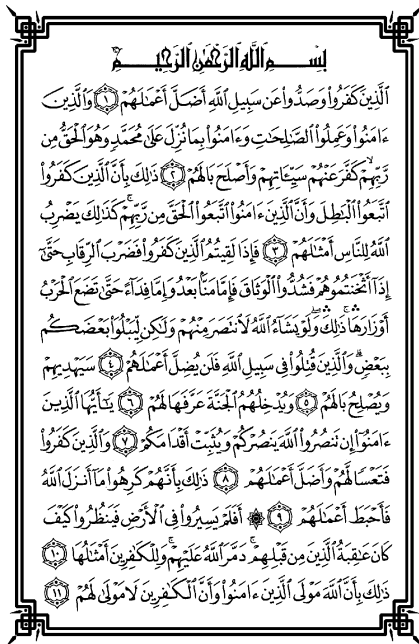 بِسْمِ اللَّهِ الرَّحْمَٰنِ الرَّحِيمِ
الَّذِينَ كَفَرُوا وَصَدُّوا عَن سَبِيلِ اللَّهِ أَضَلَّ أَعْمَٰلَهُمْ ۝١ وَالَّذِينَ
ءَامَنُوا وَعَمِلُوا الصَّٰلِحَٰتِ وَءَامَنُوا بِمَا نُزِّلَ عَلَىٰ مُحَمَّدٍ وَهُوَ الْحَقُّ مِن
رَّبِّهِمْ ۙ كَفَّرَ عَنْهُمْ سَيِّئَاتِهِمْ وَأَصْلَحَ بَالَهُمْ ۝٢ ذَٰلِكَ بِأَنَّ الَّذِينَ كَفَرُوا
اتَّبَعُوا الْبَٰطِلَ وَأَنَّ الَّذِينَ ءَامَنُوا اتَّبَعُوا الْحَقَّ مِن رَّبِّهِمْ ۚ كَذَٰلِكَ يَضْرِبُ
اللَّهُ لِلنَّاسِ أَمْثَٰلَهُمْ ۝٣ فَإِذَا لَقِيتُمُ الَّذِينَ كَفَرُوا فَضَرْبَ الرِّقَابِ حَتَّىٰ
إِذَا أَثْخَنتُمُوهُمْ فَشُدُّوا الْوَثَاقَ فَإِمَّا مَنًّا بَعْدُ وَإِمَّا فِدَاءً حَتَّىٰ تَضَعَ الْحَرْبُ
أَوْزَارَهَا ۚ ذَٰلِكَ وَلَوْ يَشَاءُ اللَّهُ لَانتَصَرَ مِنْهُمْ وَلَٰكِن لِّيَبْلُوَا بَعْضَكُم
بِبَعْضٍ ۗ وَالَّذِينَ قُتِلُوا فِي سَبِيلِ اللَّهِ فَلَن يُضِلَّ أَعْمَٰلَهُمْ ۝٤ سَيَهْدِيهِمْ
وَيُصْلِحُ بَالَهُمْ ۝٥ وَيُدْخِلُهُمُ الْجَنَّةَ عَرَّفَهَا لَهُمْ ۝٦ يَٰأَيُّهَا الَّذِينَ
ءَامَنُوا إِن تَنصُرُوا اللَّهَ يَنصُرْكُمْ وَيُثَبِّتْ أَقْدَامَكُمْ ۝٧ وَالَّذِينَ كَفَرُوا
فَتَعْسًا لَّهُمْ وَأَضَلَّ أَعْمَٰلَهُمْ ۝٨ ذَٰلِكَ بِأَنَّهُمْ كَرِهُوا مَا أَنزَلَ اللَّهُ
فَأَحْبَطَ أَعْمَٰلَهُمْ ۝٩ ۞ أَفَلَمْ يَسِيرُوا فِي الْأَرْضِ فَيَنظُرُوا كَيْفَ
كَانَ عَٰقِبَةُ الَّذِينَ مِن قَبْلِهِمْ ۚ دَمَّرَ اللَّهُ عَلَيْهِمْ ۖ وَلِلْكَٰفِرِينَ أَمْثَٰلُهَا ۝١٠
ذَٰلِكَ بِأَنَّ اللَّهَ مَوْلَى الَّذِينَ ءَامَنُوا وَأَنَّ الْكَٰفِرِينَ لَا مَوْلَىٰ لَهُمْ ۝١١